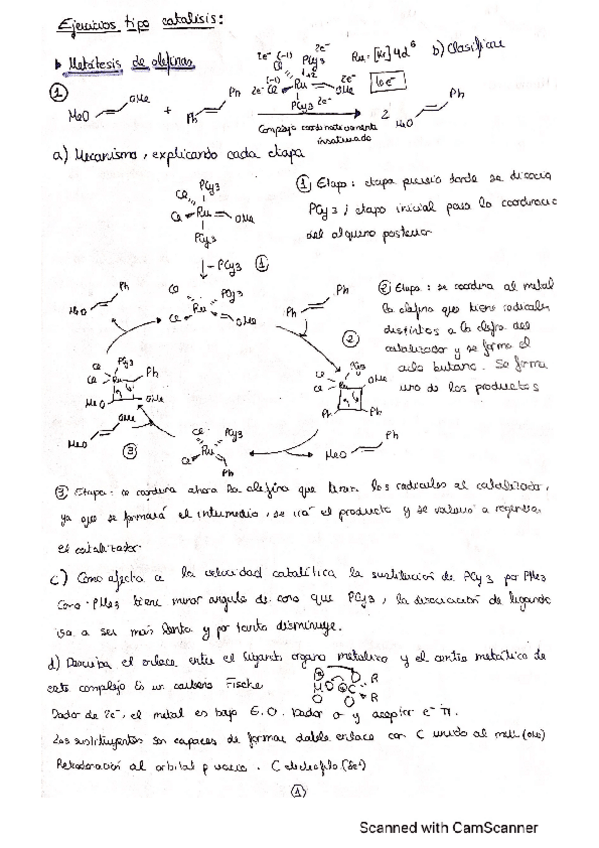 Ejercicios tipo catálisis:
▸ Metátesis de olefinas
2e⁻ (-1) Cl
PCy3 2e⁻
Ru: [Kr] 4d⁶
b) Clasificar
(-1) 2e⁻ Cl Ru +2 2e⁻ OMe
16e⁻
PCy3 2e⁻
① MeO OMe + Ph Ph 2 MeO Ph
Complejo coordinativamente insaturado
a) Mecanismo, explicando cada etapa
Cl PCy3
Cl Ru OMe
PCy3
① Etapa: etapa previa donde se disocia
PCy3; etapa inicial para la coordinación
del alqueno posterior
- PCy3 ①
MeO Ph
Cl PCy3
Cl Ru OMe
Ph Ph
②
② Etapa: se coordina al metal
la olefina que tiene radicales
distintos a la olefina del
catalizador y se forma el
ciclo butano. Se forma
uno de los productos
Cl PCy3
Cl Ru Ph
MeO OMe
Cl PCy3
Cl Ru OMe
Ph Ph
MeO OMe
③
Cl PCy3
Cl Ru
Ph
MeO Ph
③ Etapa: se coordina ahora la olefina que tienen los radicales el catalizador,
ya que se formará el intermedio, se irá el producto y se vuelve a regenerar
el catalizador.
c) Como afecta a la velocidad catalítica la sustitución de PCy3 por PMe3
Como PMe3 tiene menor angulo de cono que PCy3, la disociación de ligando
va a ser más lenta y por tanto disminuye.
d) Describa el enlace entre el ligando organometálico y el centro metálico de
este complejo Es un carbeno Fischer
M C R
R
Dador de 2e⁻, el metal es bajo E.O. Dador σ y aceptor e⁻ π.
Los sustituyentes son capaces de formar doble enlace con C unido al metal (OMe)
Retrodonación al orbital p vacio. C electrofilo (δ+)
①
Scanned with CamScanner